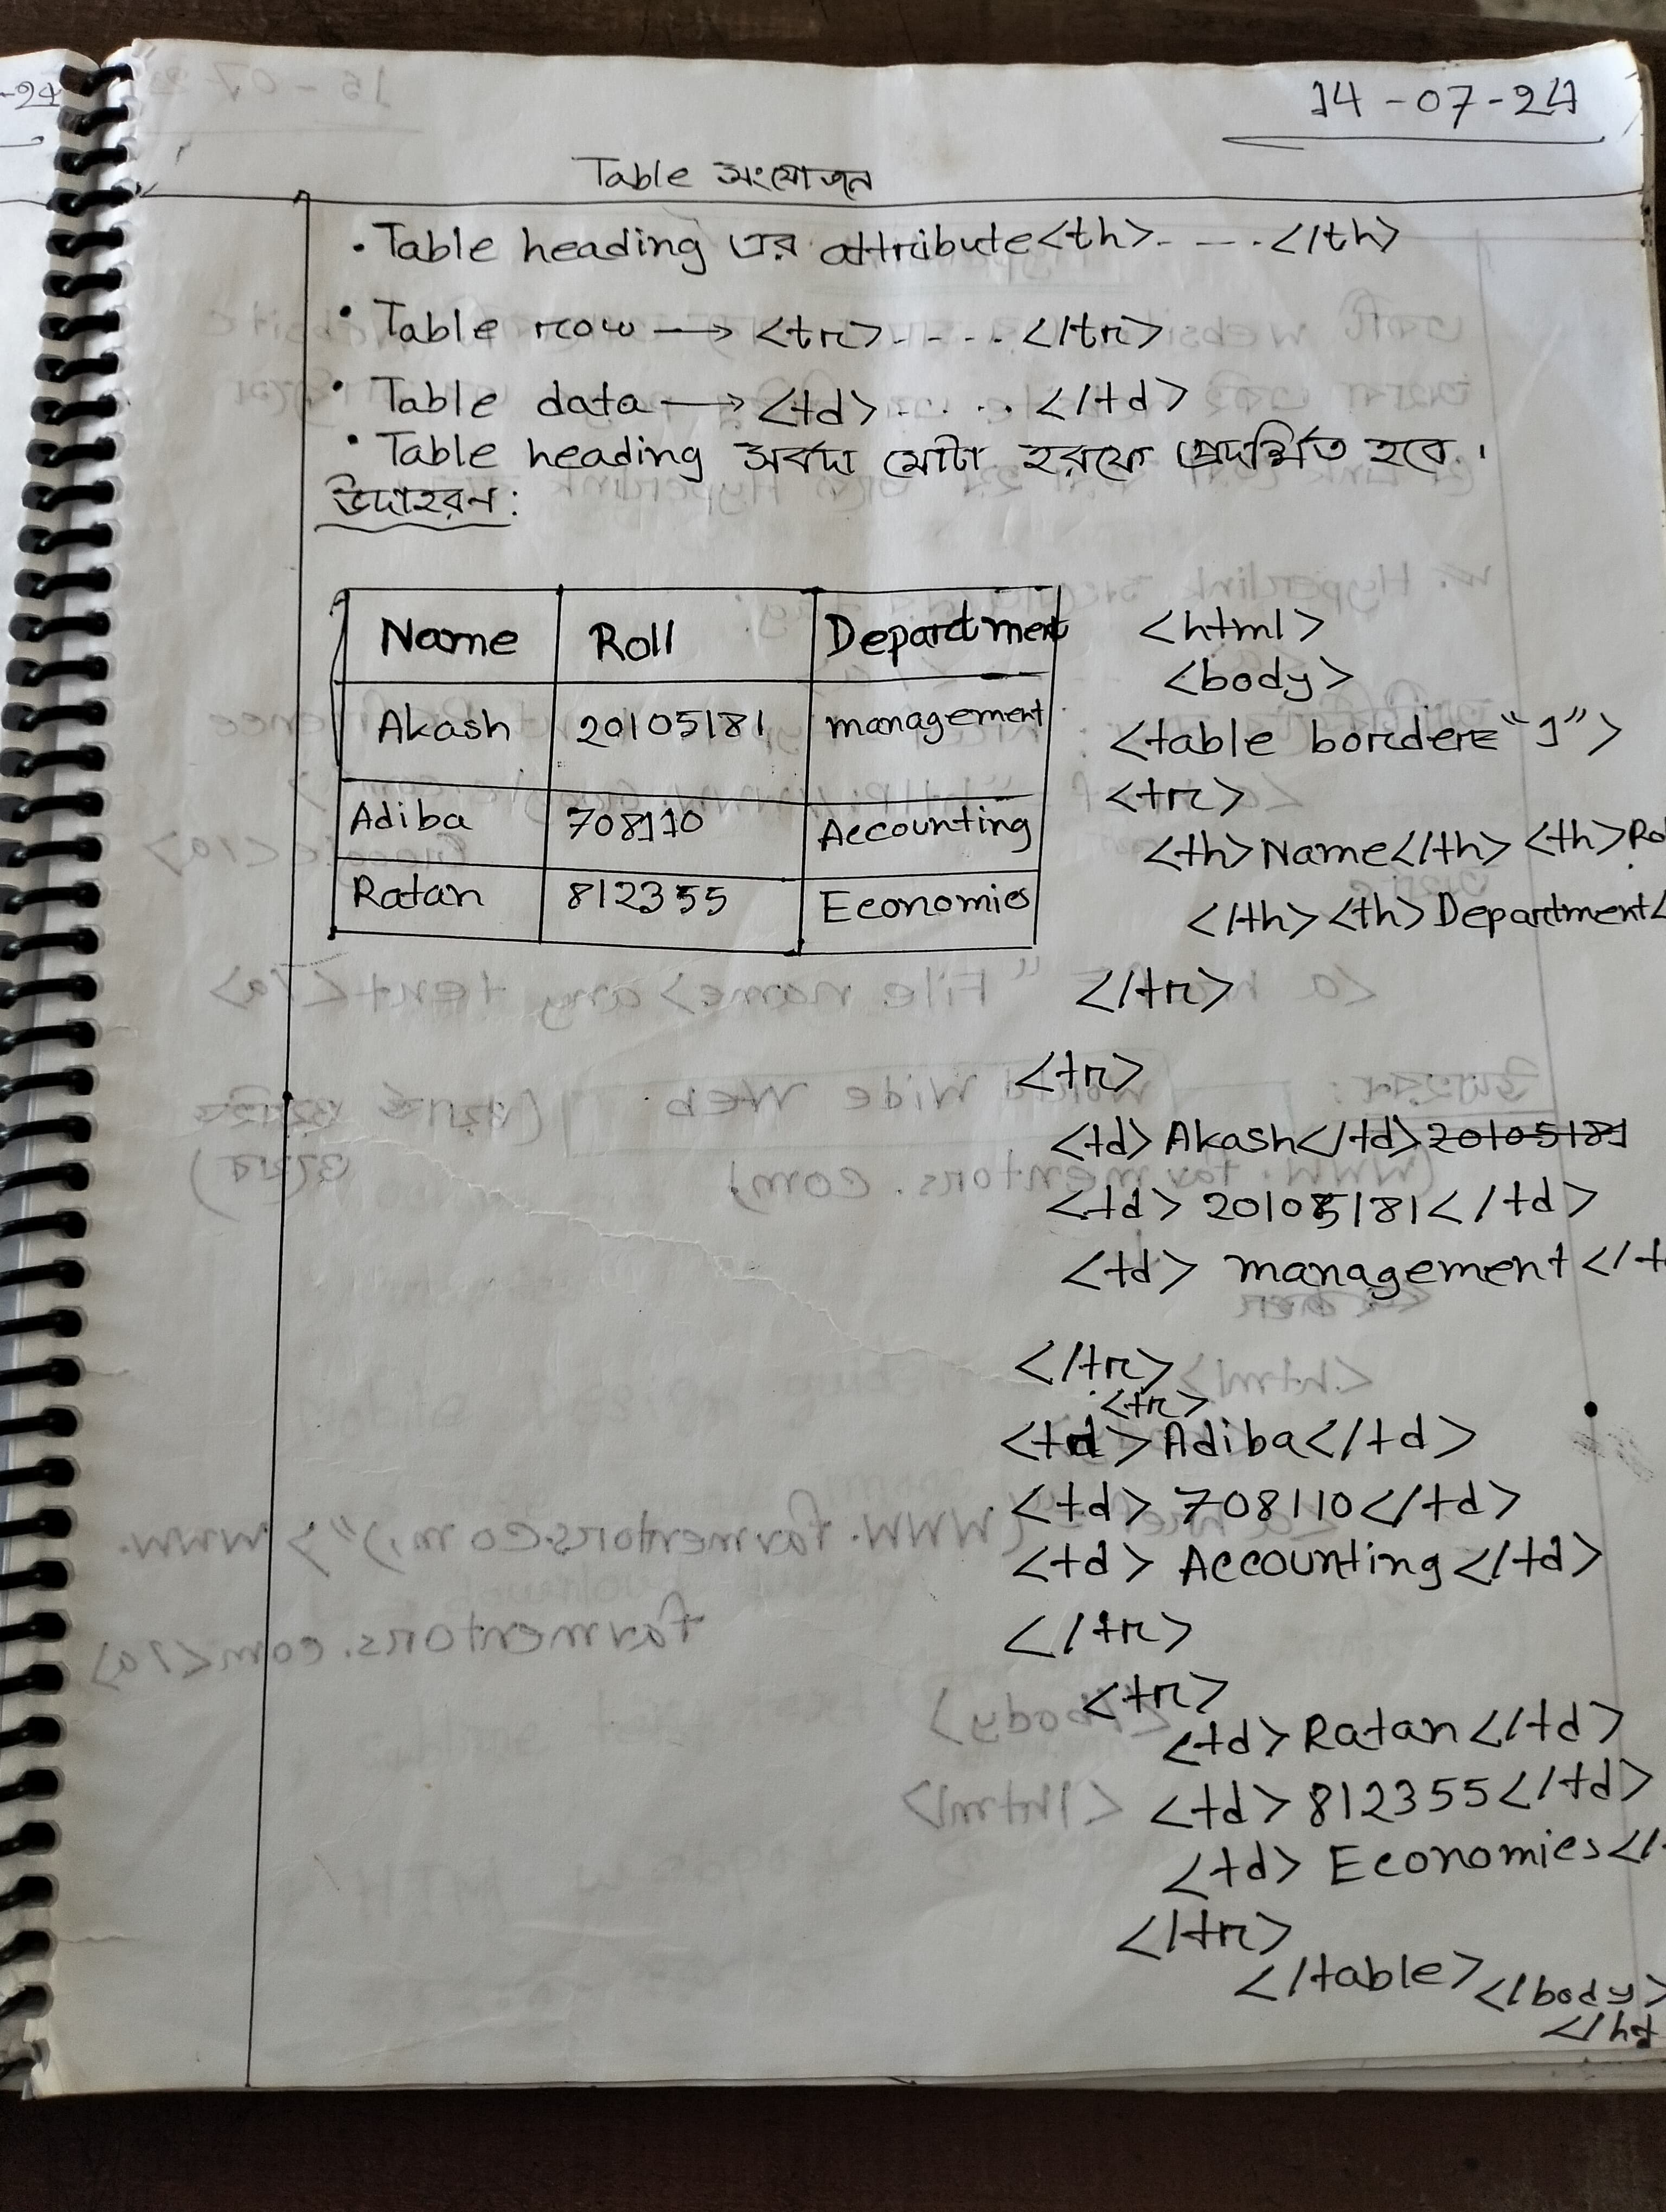 14-07-24
Table সংযোজন
• Table heading এর attribute <th>- - - . </th>
• Table row → <tr>- - - . . </tr>
• Table data → <td>- . . . . </td>
• Table heading সর্বদা মোটা হরফে প্রদর্শিত হবে।
উদাহরন:
Name Roll Department
Akash 20105181 management
Adiba 708110 Accounting
Ratan 812355 Economics
<html>
<body>
<table border="1">
<tr>
<th>Name</th> <th>Ro
</th> <th>Department<
</tr>
<tr>
<td>Akash</td> 20105181
<td> 20105181</td>
<td> management</t
</tr>
<tr>
<td>Adiba</td>
<td> 708110</td>
<td> Accounting</td>
</tr>
<tr>
<td>Ratan</td>
<td>812355</td>
<td> Economies</
</tr>
</table> </body>
</ht